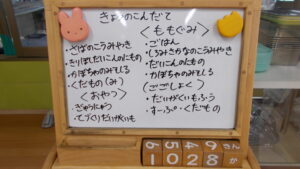 きょうのこんだて
・さばのこうみやき
・きりぼしだいこんのにもの
・かぼちゃのみそしる
・くだもの(み)
〈おやつ〉
・ぎゅうにゅう
・てづくりだいがくいも
〈ももぐみ〉
・ごはん
・しろみさかなのこうみやき
・だいこんのにもの
・かぼちゃのみそしる
〈ごごしょく〉
・だいがくいもふう
・スープ・くだもの